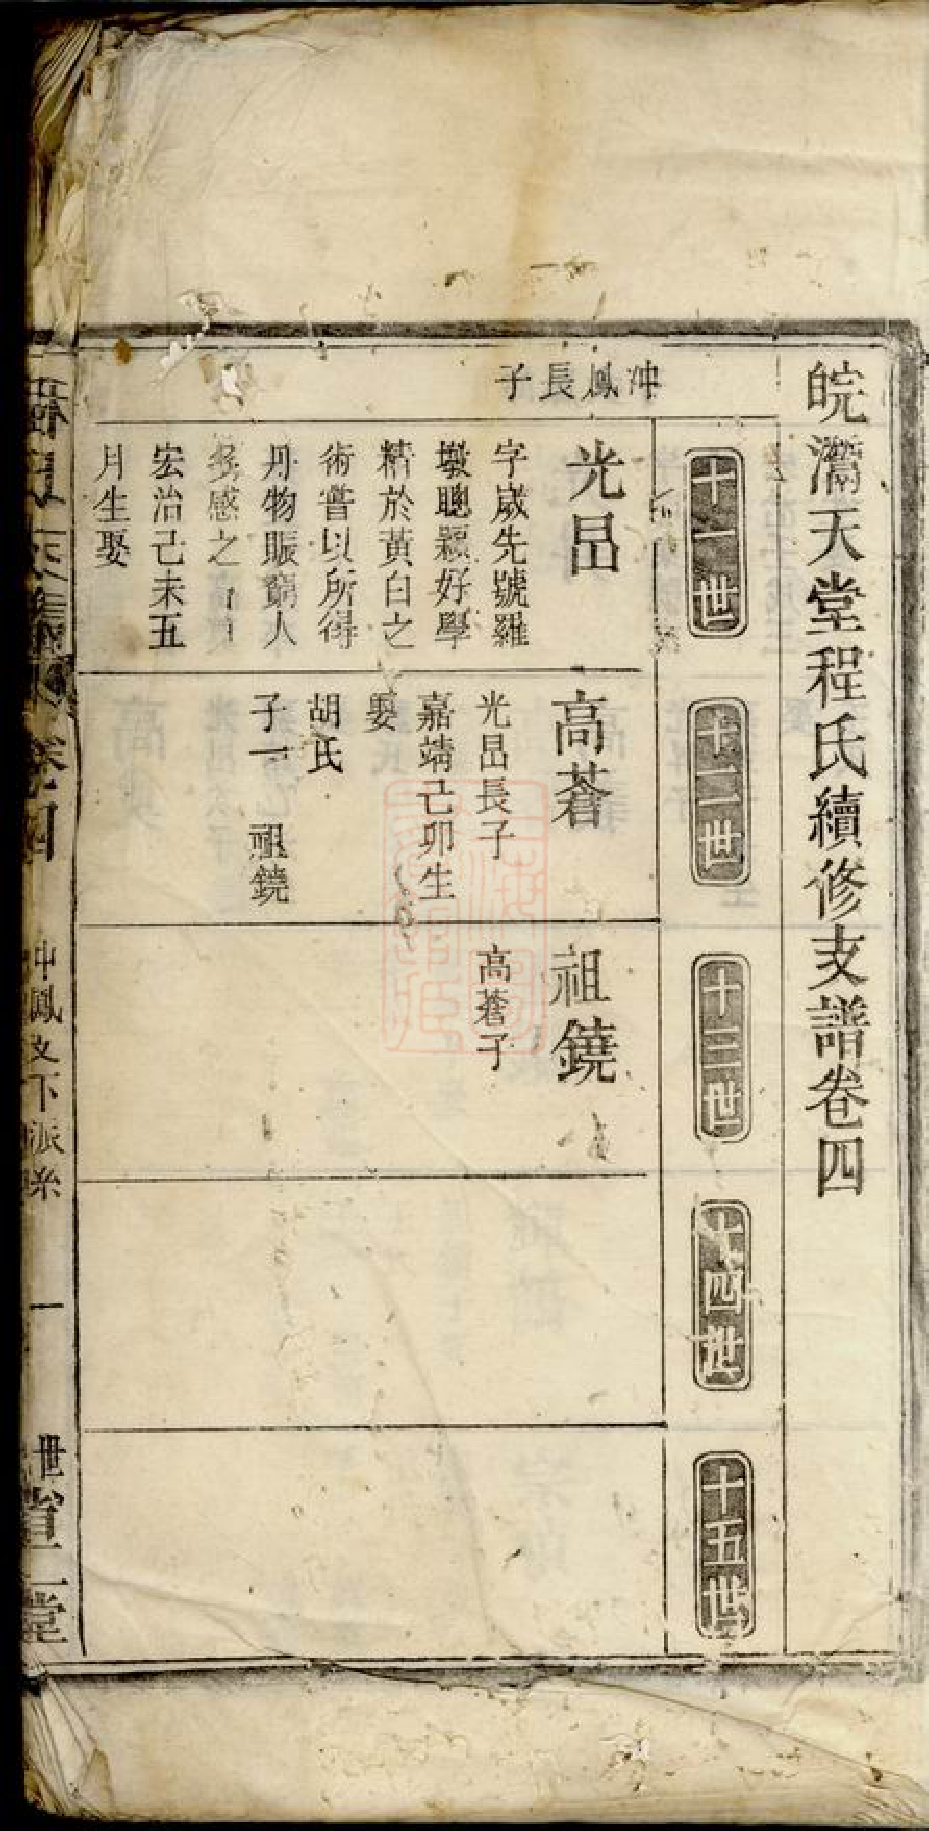 皖灊天堂程氏續修支譜卷四
十一世
十二世
十三世
十四世
十五世
冲鳳長子
光昌
字歲先號羅
墩聰穎好學
精於黃白之
術嘗以所得
丹物賑窮人
多感之
宏治己未五
月生娶
高蒼
光昌長子
嘉靖己卯生
娶
胡氏
子一 祖鐃
祖鐃
高蒼子
卷四
冲鳳支下派系
一
世省堂